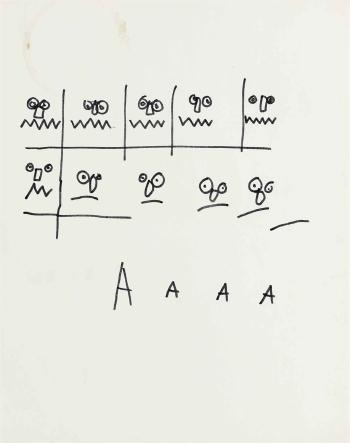 A A A A